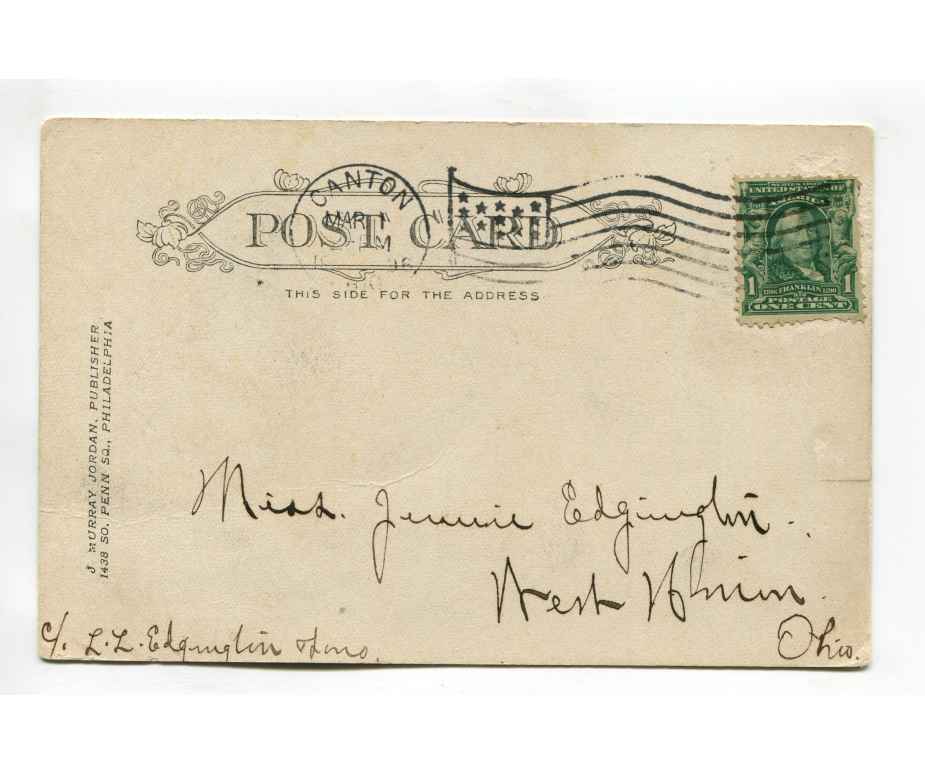 CANTON
MAR 1
M
POST CARD
THIS SIDE FOR THE ADDRESS
UNITED STATES OF
AMERICA
1 FRANKLIN 1
POSTAGE
ONE CENT
J MURRAY JORDAN, PUBLISHER
1438 SO. PENN SQ., PHILADELPHIA
Miss. Jennie Edgington.
West Union.
Ohio.
c/. L. L. Edgington & Sons.